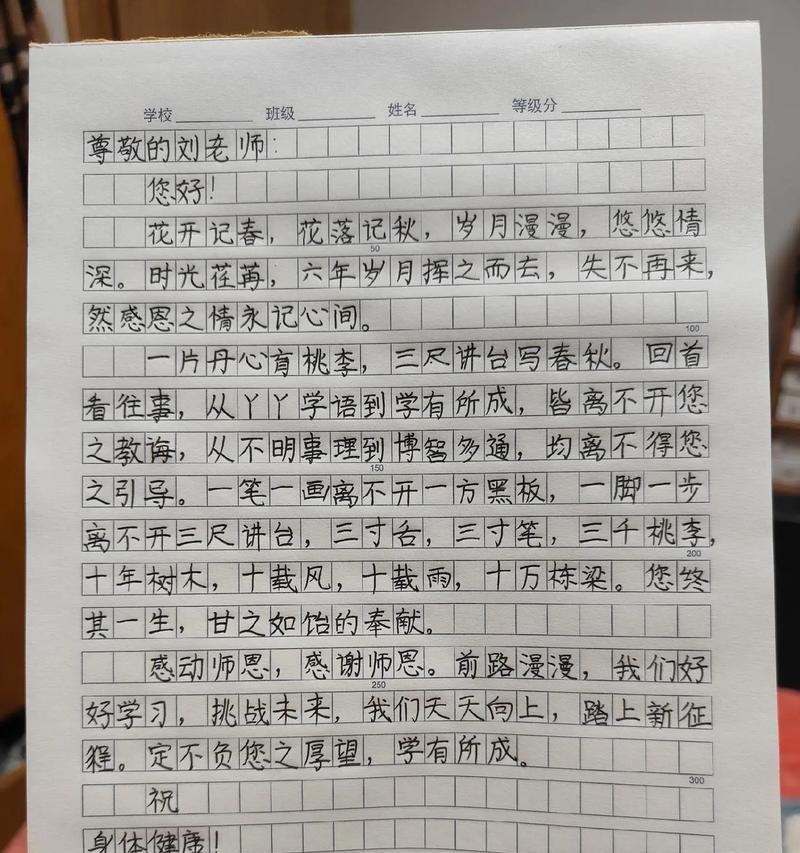 学校 班级 姓名 等级分
尊敬的刘老师：
您好！
花开记春，花落记秋，岁月漫漫，悠悠情
50
深。时光荏苒，六年岁月挥之而去，失不再来，
然感恩之情永记心间。
100
一片丹心育桃李，三尺讲台写春秋。回首
看往事，从丫丫学语到学有所成，皆离不开您
之教诲，从不明事理到博智多通，均离不得您
150
之引导。一笔一画离不开一方黑板，一脚一步
离不开三尺讲台，三寸舌，三寸笔，三千桃李，
200
十年树木，十载风，十载雨，十万栋梁。您终
其一生，甘之如饴的奉献。
感动师恩，感谢师恩。前路漫漫，我们好
250
好学习，挑战未来，我们天天向上，踏上新征
程。定不负您之厚望，学有所成。
300
祝
身体健康！